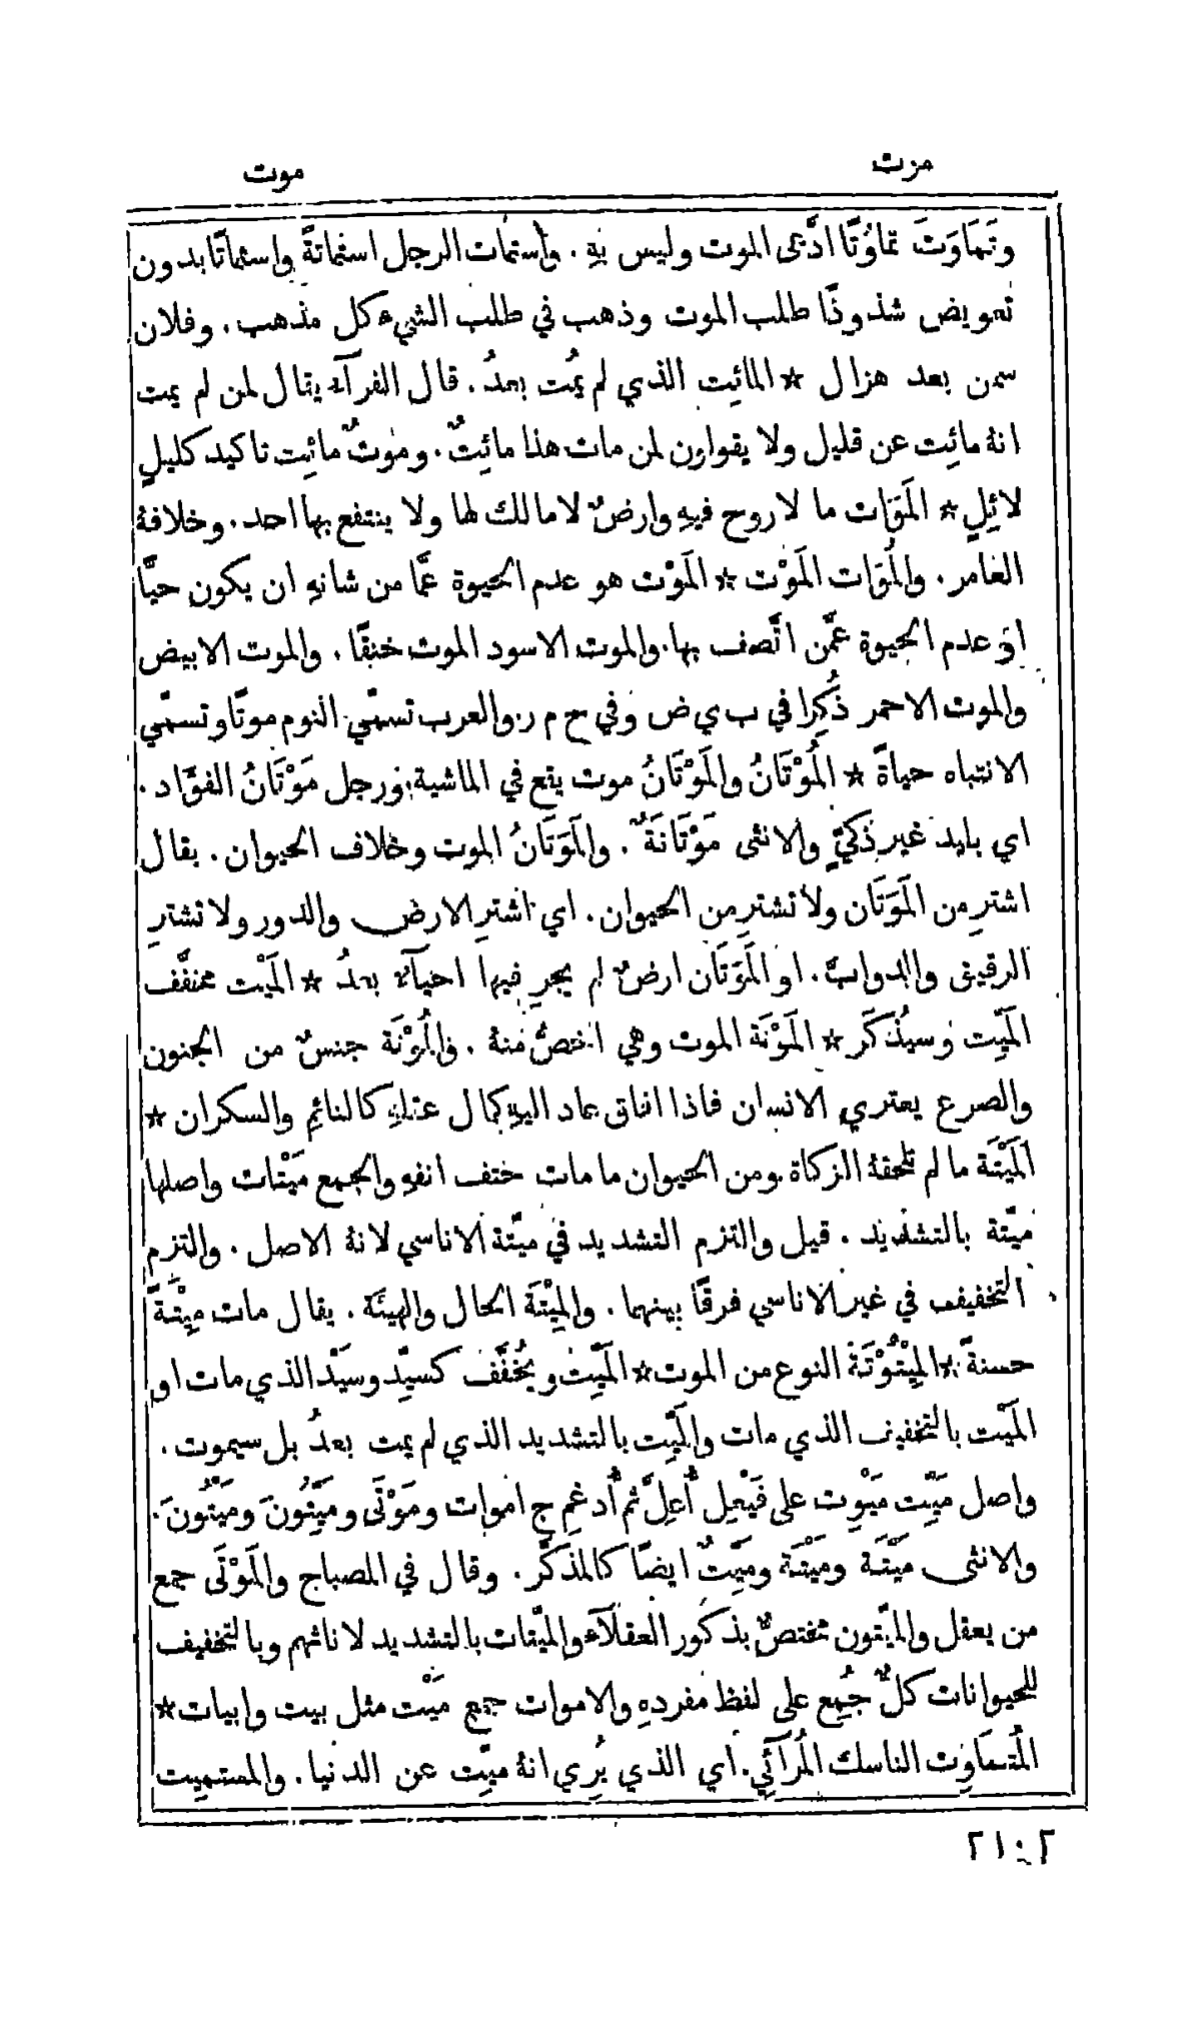 موت موت
وتَمَاوَتَ تماوُتًا ادَّعى الموت وليس بهِ . واستمات الرجل استماتةً واستماتًا بدون
تعويض شذوذًا طلب الموت وذهب في طلب الشيء كل مذهب . وفلان
سمن بعد هزال * المائِت الذي لم يمُت بعدُ . قال الفرآء يقال لمن لم يمت
انهُ مائِت عن قليل ولا يقولون لمن مات هذا مائِتٌ . وموتٌ مائِت تاكيد كليلٍ
لائِلٍ * المَوَات ما لا روح فيهِ وارضٌ لا مالك لها ولا ينتفع بها احد . وخلافهُ
العامر . والمُوَات المَوْت * المَوْت هو عدم الحيوة عمَّا من شانهِ ان يكون حيًّا
او عدم الحيوة عمَّن اتَّصف بها . والموت الاسود الموت خنقًا . والموت الابيض
والموت الاحمر ذُكِرا في ب ي ض وفي ح م ر . والعرب تسمّي النوم موتًا وتسمّي
الانتباه حياةً * المُوْتَانُ والمَوْتَانُ موت يقع في الماشية . ورجل مَوْتَانُ الفؤَاد .
اي بليد غير ذكيٍّ والانثى مَوْتَانَةٌ . والمَوَتَانُ الموت وخلاف الحيوان . يقال
اشترِ من المَوَتَان ولا تشترِ من الحيوان . اي اشترِ الارض والدور ولا تشترِ
الرقيق والدوابّ . او المَوَتَان ارضٌ لم يجرِ فيها احيآء بعدُ * المَيْت مخفَّف
المَيِّت وسيُذكَر * المَوْتَة الموت وهي اخصُّ منهُ . والمُوْتَة جنسٌ من الجنون
والصرع يعتري الانسان فاذا افاق عاد اليهِ كمال عقلهِ كالنائِم والسكران *
المَيْتَة ما لم تلحقهُ الزكاة . ومن الحيوان ما مات حتف انفهِ والجمع مَيْتات واصلها
ميّتة بالتشديد . قيل والتزم التشديد في ميّتة الاناسي لانهُ الاصل . والتزم
التخفيف في غير الاناسي فرقًا بينهما . والمِيْتَة الحال والهيئَة . يقال مات مِيْتَةً
حسنةً * المِيْتُوْتَة النوع من الموت * المَيِّت ويُخفَّف كسيِّد وسَيْد الذي مات او
المَيْت بالتخفيف الذي مات والمَيِّت بالتشديد الذي لم يمت بعدُ بل سيموت .
واصل مَيِّت مَيْوِت على فَيْعِل أُعِلَّ ثم أُدغِم ج اموات ومَوْتَى ومَيِّتُونَ ومَيْتُونَ .
والانثى مَيِّتَة ومَيْتَة ومَيِّتٌ ايضًا كالمذكَّر . وقال في المصباح والمَوْتَى جمع
من يعقل والميّتون مختصٌّ بذكور العقلآء والميّتات بالتشديد لاناثهم وبالتخفيف
للحيوانات كلٌّ جُمِع على لفظ مفردهِ والاموات جمع مَيْت مثل بيت وابيات *
المُتَمَاوِت الناسك المُرآئِي . اي الذي يُرِي انهُ ميّت عن الدنيا . والمستميت
٢١٠٢